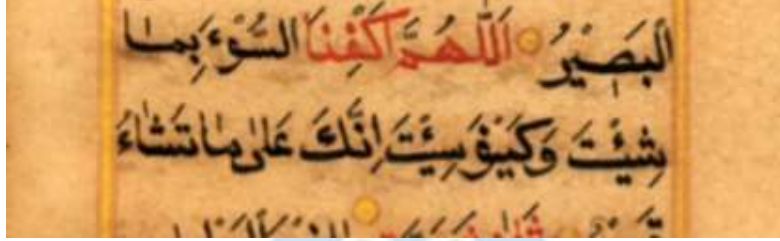 الْبَصِيْرُ اَللّٰهُمَّ اكْفِنَا السُّوْءَ بِمَا
شِئْتَ وَكَيْفَ شِئْتَ اِنَّكَ عَلٰى مَا تَشَاءُ